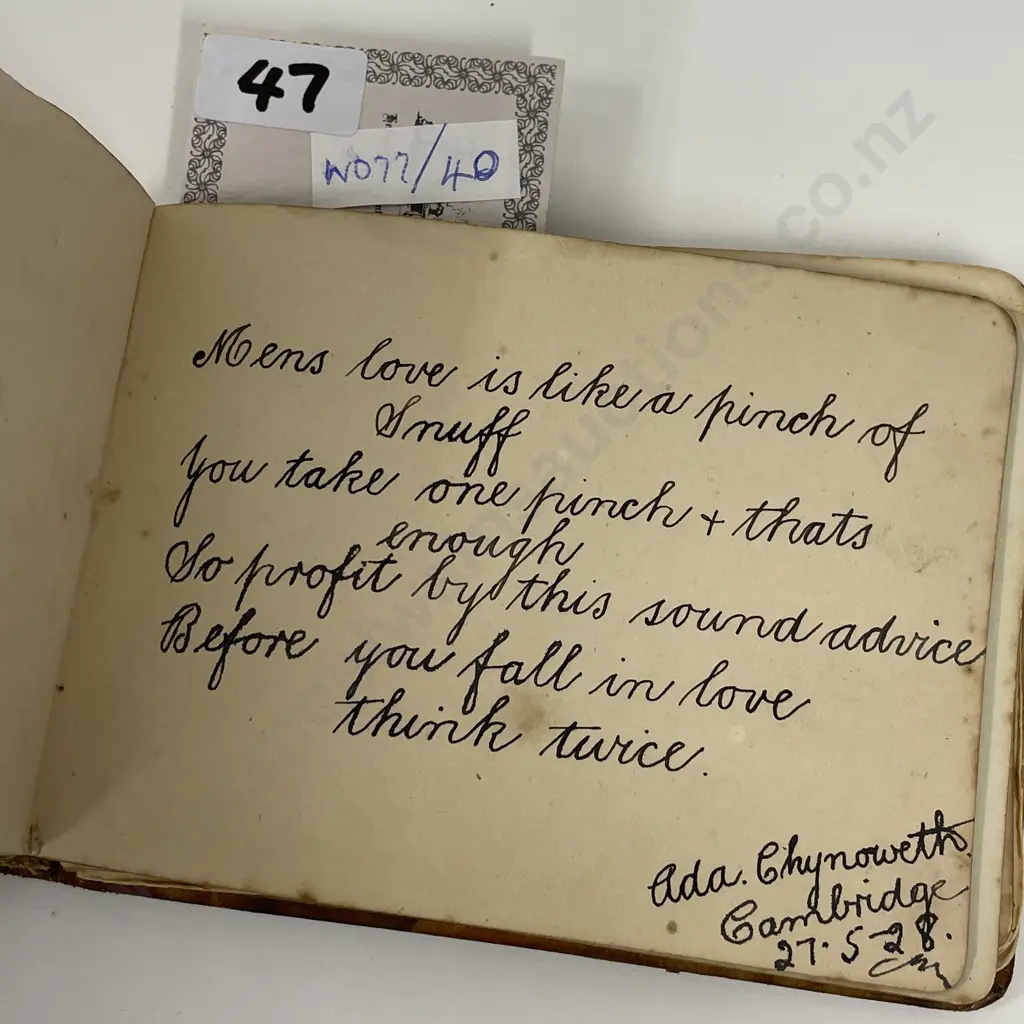 47
W077/40
Mens love is like a pinch of
Snuff
You take one pinch + thats
enough
So profit by this sound advice
Before you fall in love
think twice.
Ada. Chynoweth.
Cambridge
27.5-28.